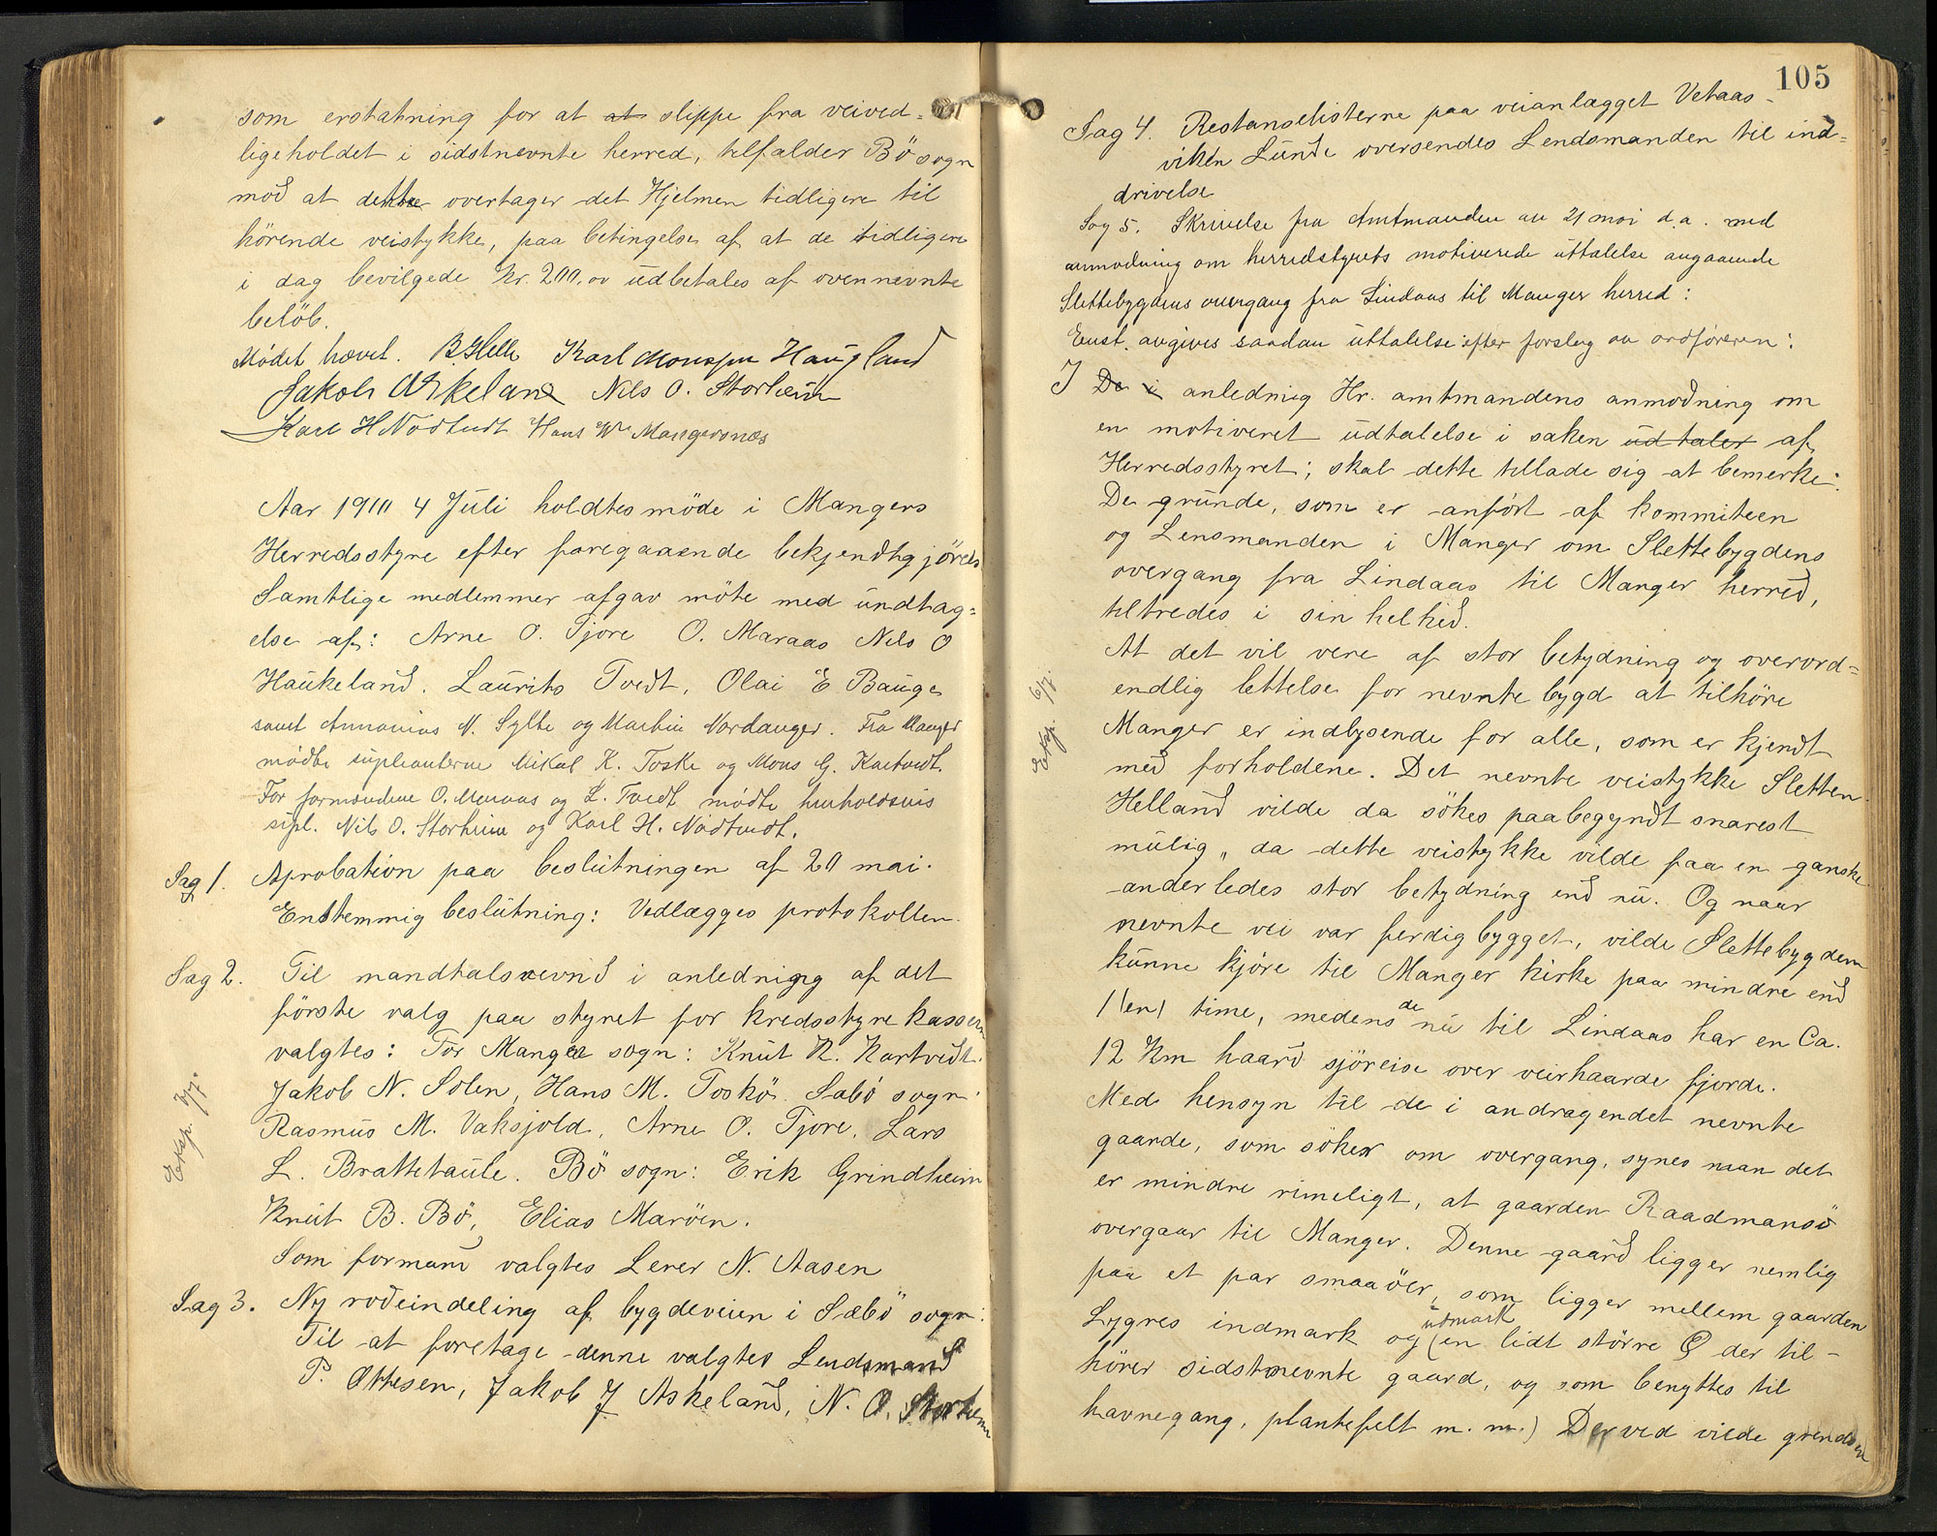 som erstatning for at at slippe fra veived-
ligeholdet i sidstnevnte herred, tilfalder Bö sogn
mod at dette overtager det Hjelmen tidligere til
hörende veistykke, paa betingelse af at de tidligere
i dag bevilgede kr. 200,00 udbetales af ovennevnte
belöb.
Mödet hævet. B Helle Karl Monssen Haugland
Jakob Askeland Nils O. Storheim
Karl H Nödtvedt Hans M Mangersnes
Aar 1910 4 Juli holdtes möde i Mangers
Herredsstyre efter foregaaende bekjendtgjörelse
Samtlige medlemmer afgav möte med undtag-
else af: Arne O. Fjore O. Maraas Nils O
Haukeland. Laurits Tvedt, Olai E Bauge
samt Annanias N. Sylte og Martin Nordanger. Fra Manger
mødte supleanterne Mikal K. Toske og Mons G. Kartveit.
For formændene O. Maraas og L. Tvedt mödte henholdsvis
supl. Nils O. Storheim og Karl H. Nödtvedt.
Sag 1. Aprobation paa beslutningen af 20 mai.
Enstemmig beslutning: Vedlægges protokollen.
Sag 2. Til mandtalsnevnd i anledning af det
förste valg paa styret for kredssykekassen
valgtes: For Manger sogn: Knut K. Kartveidt.
Jakob N. Solen, Hans M. Toskö. Sæbö sogn:
Rasmus M. Vaksjold, Arne O. Fjore, Lars
L. Brattetaule. Bö sogn: Erik Grindheim
Knut B. Bö, Elias Maröen.
Som formann valgtes Lerer N. Aasen
Eksp. 7/7.
Sag 3. Ny rodeindeling af bygdeveien i Sæbö sogn:
Til at foretage denne valgtes Lendsmand
P. Ottesen, Jakob J Askeland, N. O. Storheim
105
Sag 4. Restanselisterne paa veianlægget Vetaas-
viken Lunde oversendes Lendsmanden til ind-
drivelse
Sag 5. Skrivelse fra Amtmanden av 21 mai d.a. med
anmodning om herredstyrets motiverede uttalelse angaaende
Slettebygdens overgang fra Lindaas til Manger herred:
Enst. avgives saadan uttalelse efter forslag av ordføreren:
I De i anledning Hr. amtmandens anmodning om
en motiveret udtalelse i saken udtaler af
Herredsstyret; skal dette tillade sig at bemerke:
De grunde, som er anfört af kommiteen
og Lensmanden i Manger om Slettebygdens
overgang fra Lindaas til Manger herred,
tiltredes i sin helhed.
At det vil vere af stor betydning og overord-
endlig lettelse for nevnte bygd at tilhöre
Manger er indlysende for alle, som er kjendt
med forholdene. Det nevnte veistykke Sletten-
Helland vilde da sökes paabegyndt snarest
mulig, da dette veistykke vilde faa en ganske
anderledes stor betydning end nu. Og naar
nevnte vei var ferdig bygget, vilde Slettebygden
kunne kjöre til Manger kirke paa mindre end
1 (en) time, medens de nu til Lindaas har en Ca.
12 Km haard sjöreise over veirhaarde fjorde.
Eksp. 6/7
Med hensyn til de i andragendet nevnte
gaarde, som söker om overgang, synes man det
er mindre rimeligt, at gaarden Raadmansö
overgaar til Manger. Denne gaard ligger nemlig
paa et par smaaöer, som ligger mellem gaarden
Lygres indmark og utmark (en lidt större Ö der til-
hörer sidstnevnte gaard, og som benyttes til
havnegang, plantefelt m. m.) Derved vilde grendsen